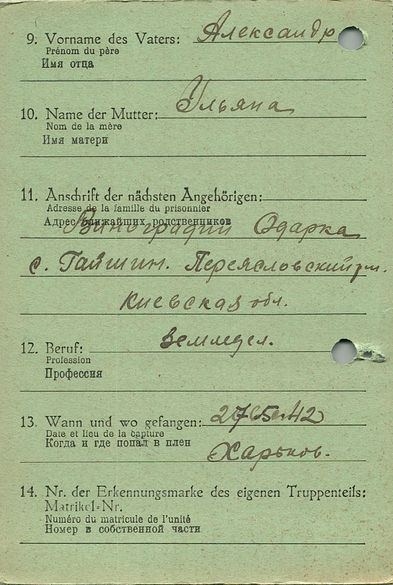 9. Vorname des Vaters: Александр
Prénom du père
Имя отца
10. Name der Mutter: Ульяна
Nom de la mère
Имя матери
11. Anschrift der nächsten Angehörigen:
Adresse de la famille du prisonnier
Адрес ближайших родственников
Одарка
с. Гайшин. Переясловский рн.
Киевская обл.
12. Beruf: Земледел.
Profession
Профессия
13. Wann und wo gefangen: 27.5.42
Date et lieu de la capture
Когда и где попал в плен
Харьков.
14. Nr. der Erkennungsmarke des eigenen Truppenteils:
Matrikel-Nr.
Numéro du matricule de l'unité
Номер в собственной части